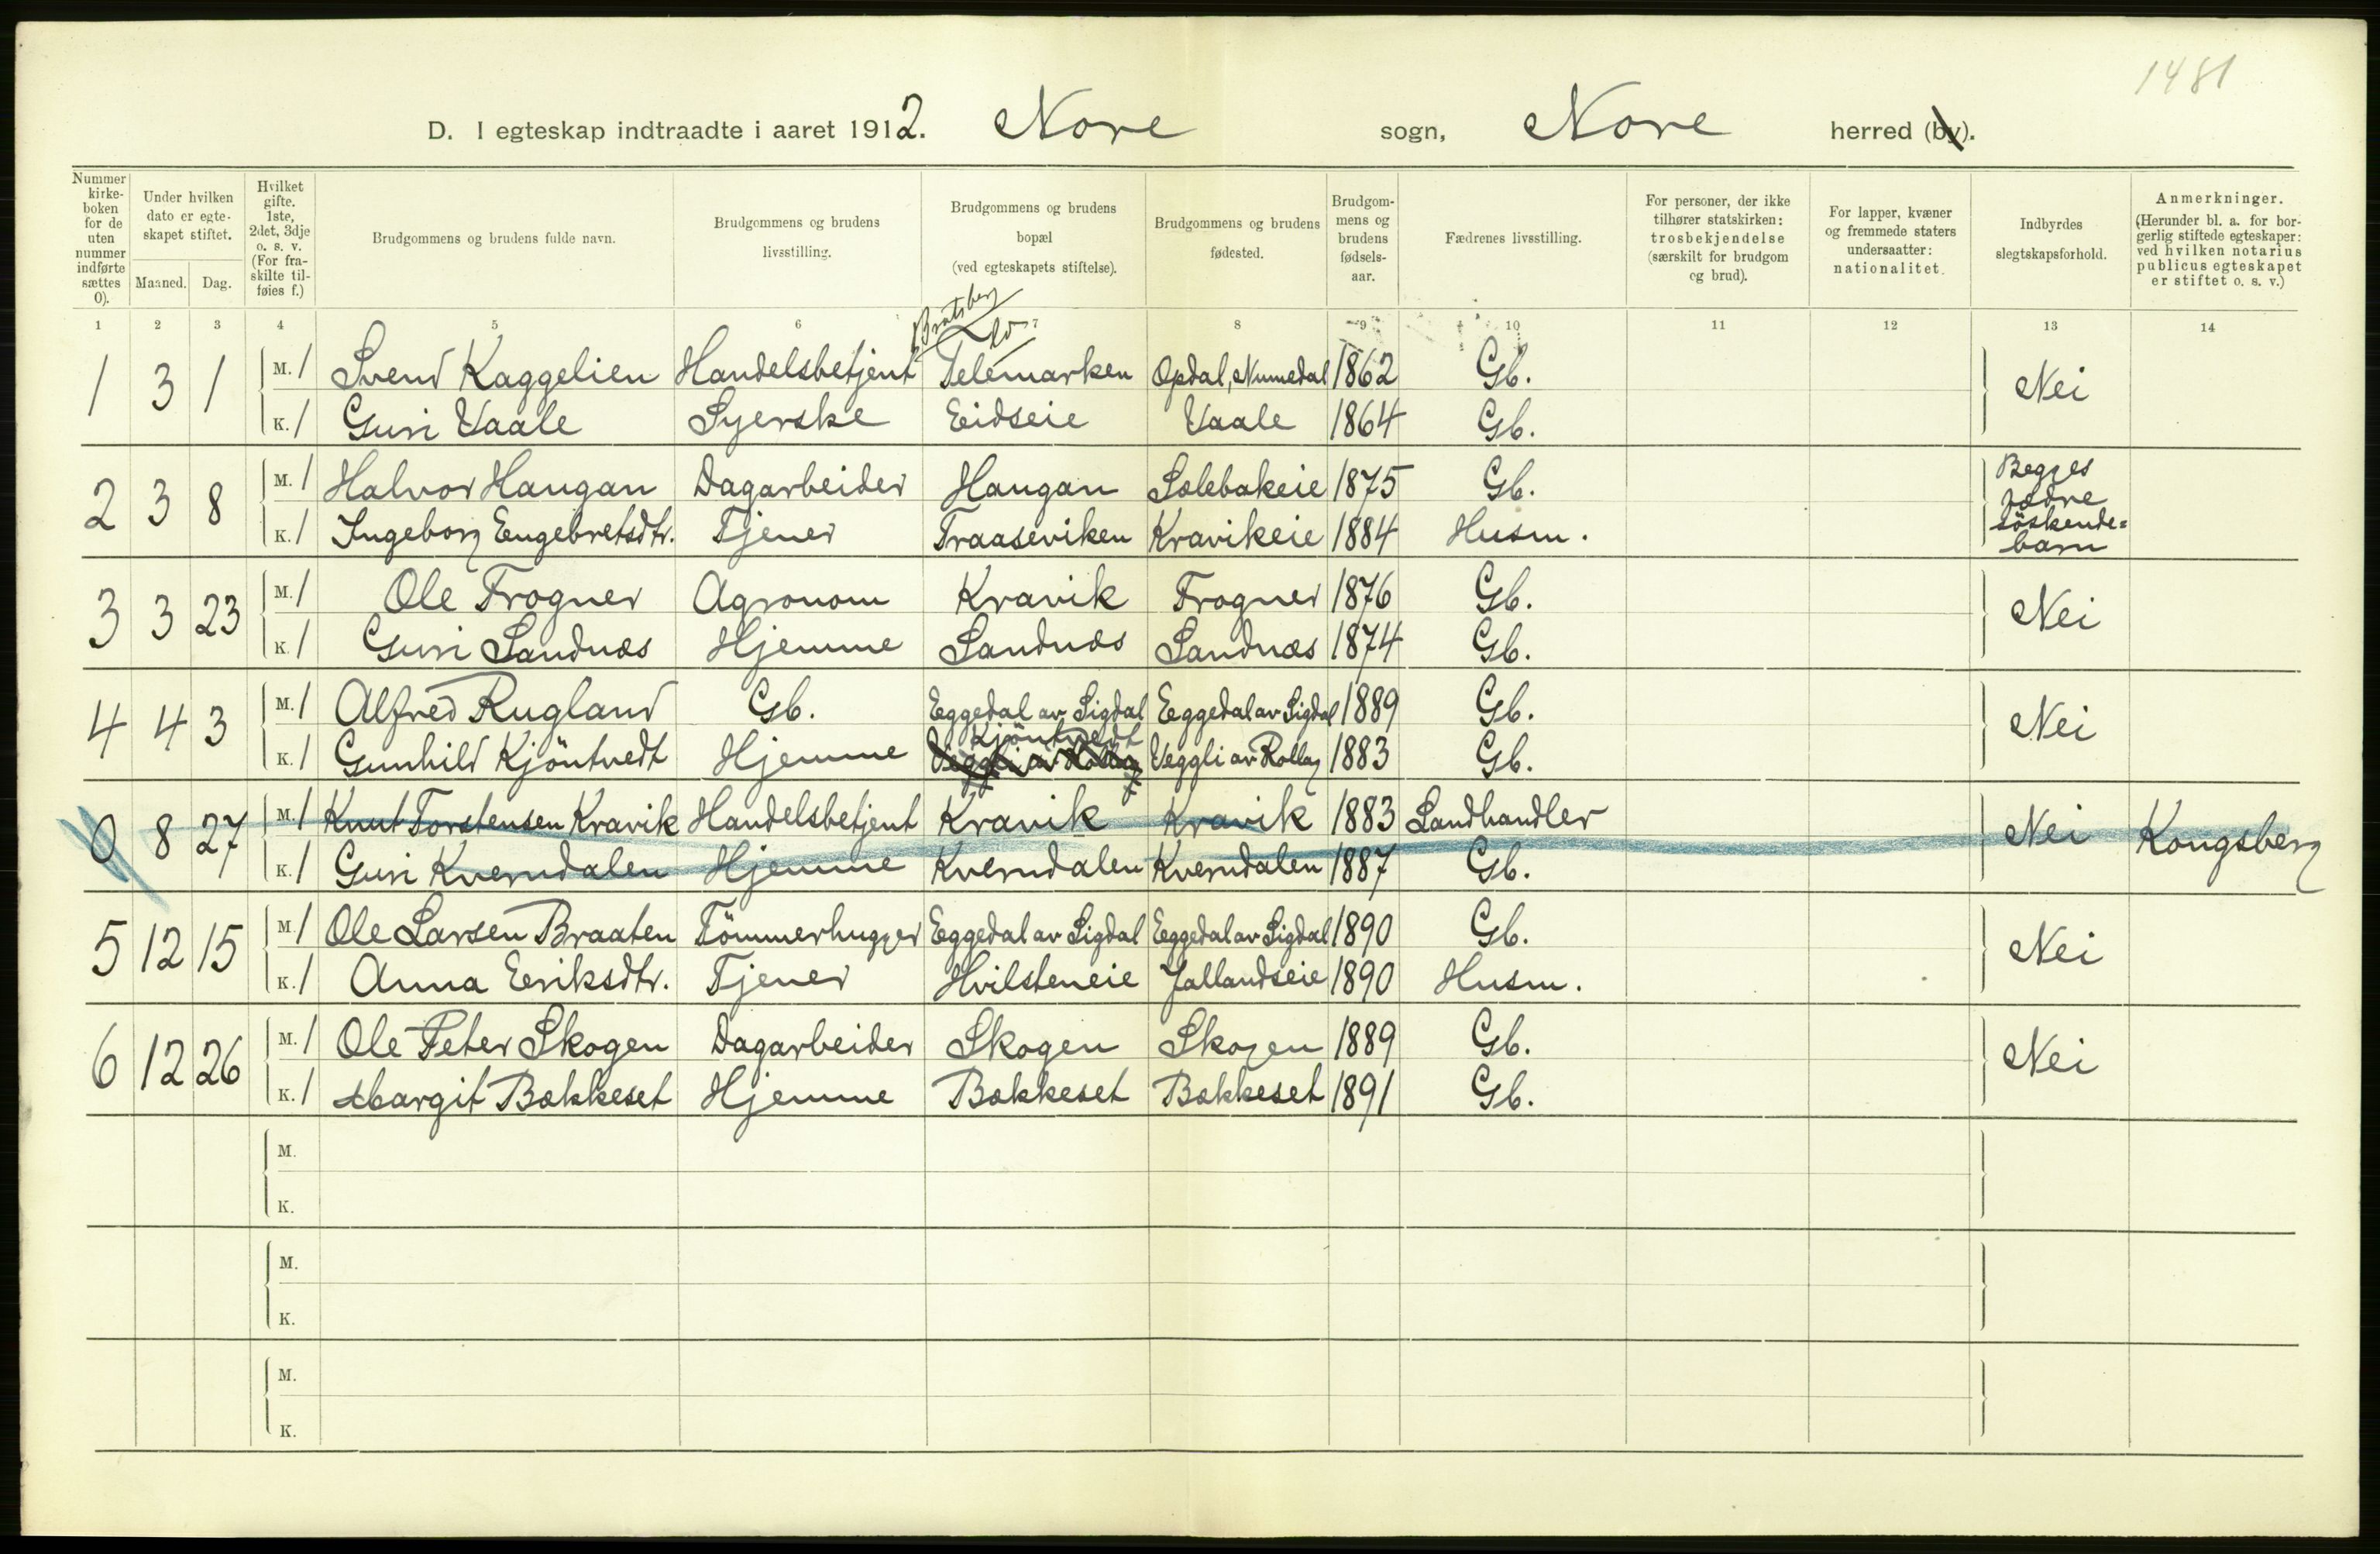 1481
D. I egteskap indtraadte i aaret 1912. Nore sogn, Nore herred (by).
Nummer kirke- boken for de uten nummer indførte sættes 0).
Under hvilken dato er egte- skapet stiftet.
Maaned. Dag.
Hvilket gifte. 1ste, 2det, 3dje o. s. v. (For fra- skilte til- føies f.)
Brudgommens og brudens fulde navn.
Brudgommens og brudens livsstilling.
Brudgommens og brudens bopæl (ved egteskapets stiftelse).
Brudgommens og brudens fødested.
Brudgom- mens og brudens fødsels- aar.
Fædrenes livsstilling.
For personer, der ikke tilhører statskirken: trosbekjendelse (særskilt for brudgom og brud).
For lapper, kvæner og fremmede staters undersaatter: nationalitet.
Indbyrdes slegtskapsforhold.
Anmerkninger. (Herunder bl. a. for bor- gerlig stiftede egteskaper: ved hvilken notarius publicus egteskapet er stiftet o. s. v.)
1 2 3 4 5 6 7 8 9 10 11 12 13 14
Bratsberg
1 3 1 M. 1 Svend Kaggelien Handelsbetjent Telemarken Opdal, Numedal 1862 Gb. Nei
K. 1 Guri Vaale Syerske Eidseie Vaale 1864 Gb.
2 3 8 M. 1 Halvor Haugan Dagarbeider Haugan Solebakeie 1875 Gb. Begges fædre söskende= barn
K. 1 Ingeborg Eengebretsdtr. Tjener Traaseviken Kravikeie 1884 Husm.
3 3 23 M. 1 Ole Frogner Agronom Kravik Frogner 1876 Gb. Nei
K. 1 Guri Sandnæs Hjemme Sandnæs Sandnæs 1874 Gb.
4 4 3 M. 1 Alfred Rugland Gb. Eggedal av Sigdal Eggedal av Sigdal 1889 Gb. Nei
Kjöntvedt
K. 1 Gunhild Kjöntvedt Hjemme Veggli av Rollag Veggli av Rollag 1883 Gb.
0 8 27 M. 1 Knut Torstensen Kravik Handelsbetjent Kravik Kravik 1883 Landhandler Nei Kongsberg
K. 1 Guri Kverndalen Hjemme Kverndalen Kverndalen 1887 Gb.
5 12 15 M. 1 Ole Larsen Braaten Tömmerhugger Eggedal av Sigdal Eggedal av Sigdal 1890 Gb. Nei
K. 1 Anna Eeriksdtr. Tjener Hvilsteneie Jallandseie 1890 Husm.
6 12 26 M. 1 Ole Peter Skogen Dagarbeider Skogen Skogen 1889 Gb. Nei
K. 1 Margit Bækkeset Hjemme Bækkeset Bækkeset 1891 Gb.
M.
K.
M.
K.
M.
K.